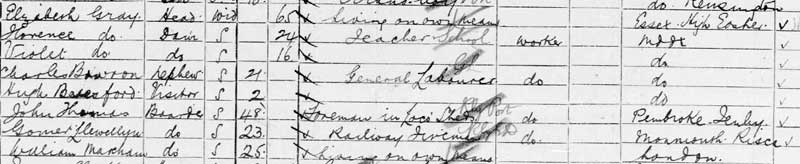 do. Kensington
Elizabeth Gray Head Wid 65 x Living on own means Essex High Easter
Florence do. Daur S 24 x Teacher School worker Mddx
Violet do do S 16 x do
Charles Bowron Nephew S 21 x General Labourer do do
Hugh Beresford Visitor S 2 x do
John Thomas Boarder S 48 Foreman in Loco Shed do Pembroke Tenby
Gomer Llewellyn do S 23 x Railway Fireman do. Monmouth Risca
William Marcham do S 25 x Living on own means London